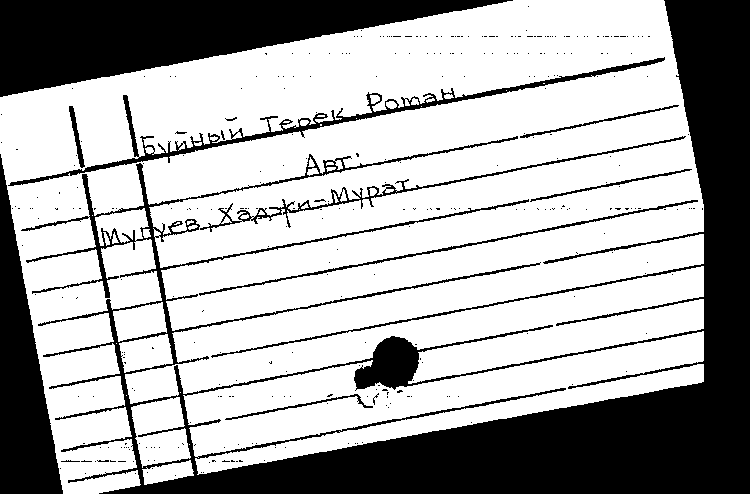 Буйный Терек. Роман.
Авт:
Мугуев, Хаджи-Мурат.